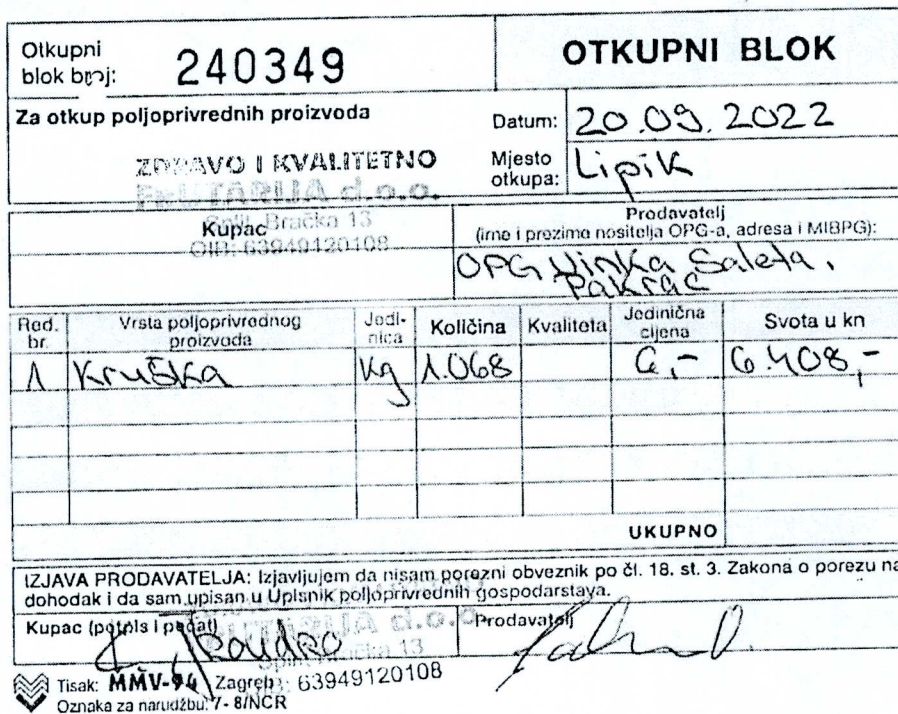 Otkupni
blok broj: 240349
OTKUPNI BLOK
Za otkup poljoprivrednih proizvoda
Datum: 20.09.2022
ZDRAVO I KVALITETNO
FRUTARIJA d.o.o.
Split, Bračka 13
OIB: 63949120108
Mjesto
otkupa: Lipik
Kupac
Prodavatelj
(ime i prezime nositelja OPG-a, adresa i MIBPG):
OPG Vinka Saleta,
Pakrac
Red. br. Vrsta poljoprivrednog proizvoda Jedi-nica Količina Kvaliteta Jedinična cijena Svota u kn
1 Kruška kg 1.068 6,- 6.408,-
UKUPNO
IZJAVA PRODAVATELJA: Izjavljujem da nisam porezni obveznik po čl. 18. st. 3. Zakona o porezu na
dohodak i da sam upisan u Upisnik poljoprivrednih gospodarstava.
Kupac (potpis i pečat)
Prodavatelj
FRUTARIJA d.o.o.
Split, Bračka 13
OIB: 63949120108
Tisak: MMV-94 Zagreb
Oznaka za narudžbu: 7- 8/NCR